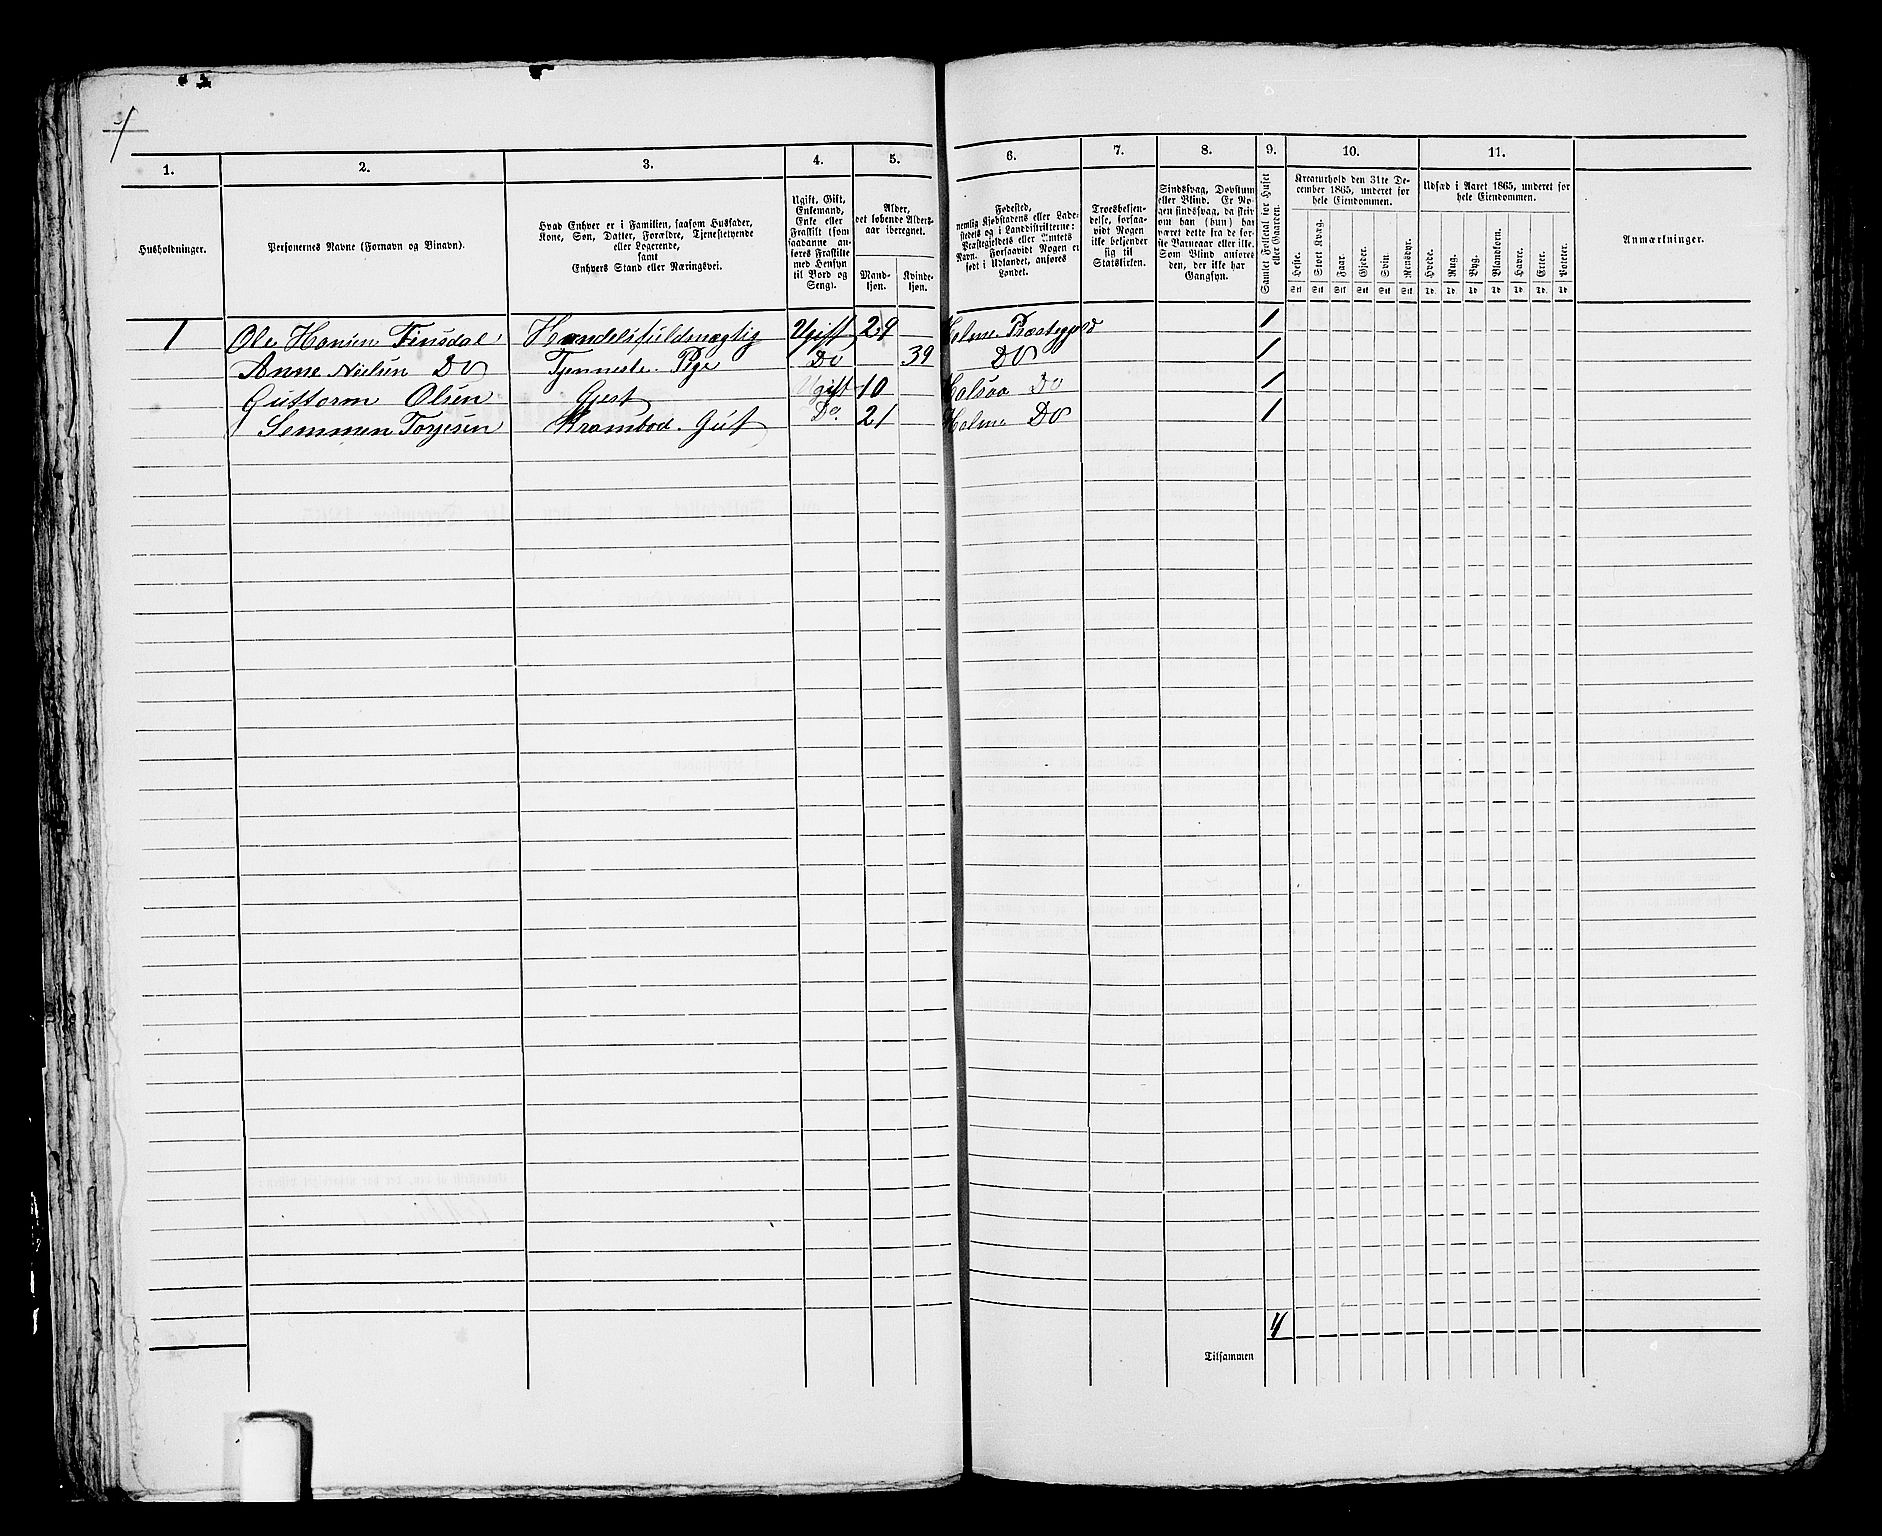 1. 2. 3. 4. 5. 6. 7. 8. 9. 10. 11.
Husholdninger.
Personernes Navne (Fornavn og Binavn).
Hvad Enhver er i Familien, saasom Husfader,
Kone, Søn, Datter, Forældre, Tjenestetyende
eller Logerende,
samt
Enhvers Stand eller Næringsvei.
Ugift, Gift,
Enkemand,
Enke eller
Fraskilt (som
saadanne an-
føres Fraskilte
med Hensyn
til Bord og
Seng).
Alder,
det løbende Alders-
aar iberegnet.
Mand-
kjøn.
Kvinde-
kjøn.
Fødested,
nemlig Kjøbstadens eller Lade-
stedets og i Landdistrikterne:
Præstegjeldets eller Amtets
Navn. Forsaavidt Nogen er
født i Udlandet, anføres
Landet.
Troesbekjen-
delse, forsaa-
vidt Nogen
ikke bekjender
sig til
Statskirken.
Sindssvag, Døvstum
eller Blind. Er No-
gen sindssvag, da skriv
om han (hun) har
været dette fra de før-
ste Barneaar eller ikke.
Som Blind anføres
den, der ikke har
Gangsyn.
Samlet Folketal for Huset
eller Gaarden.
Kreaturhold den 31te De-
cember 1865, underet for
hele Eiendommen.
Heste. Stort Kvæg. Faar. Gjeder. Svin. Rensdyr.
Stk Stk Stk Stk Stk Stk
Udsæd i Aaret 1865, underet for
hele Eiendommen.
Hvede. Rug. Byg. Blandkorn. Havre. Erter. Poteter.
Td. Td. Td. Td. Td. Td. Td.
Anmærkninger.
1 Ole Hansen Finsdal Handelsfuldmægtig Ugift 29 Holme Præstegjeld 1
Anne Nielsen Do Tjenneste Pige Do 39 Do 1
Guttorm Olsen Gjest Ugift 10 Halsaa Do 1
Semmen Torjesen Krambod Gut Do. 21 Holme Do 1
4
Tilsammen